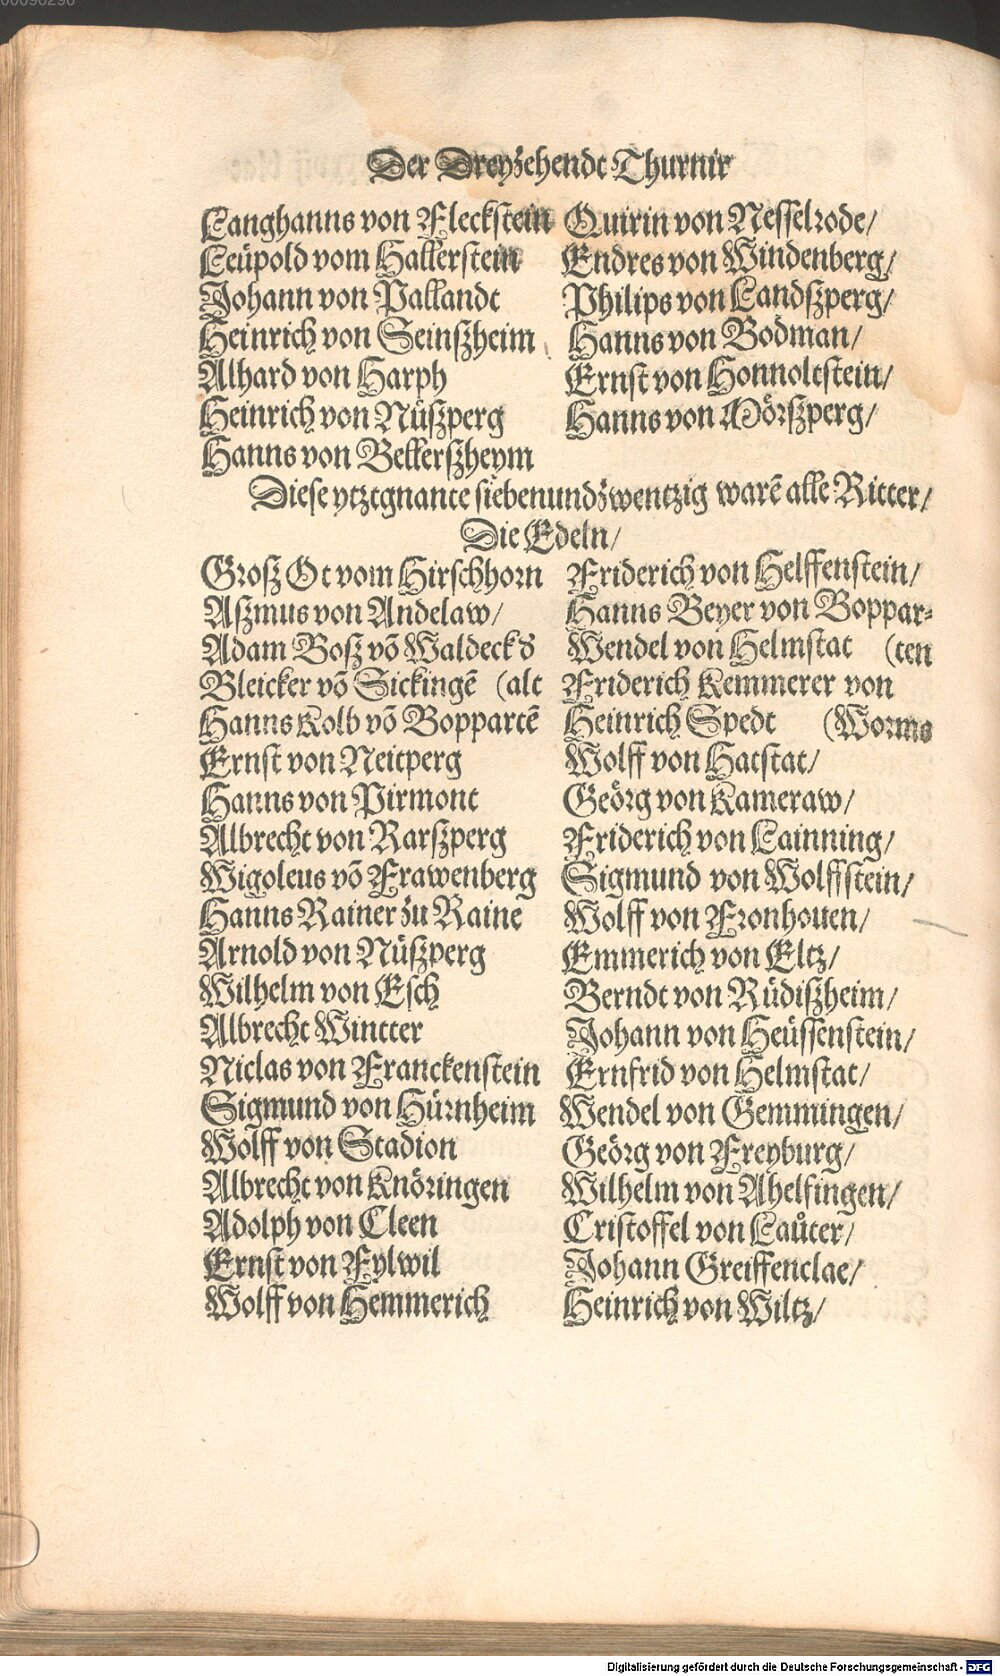 00090290
Der Dreyzehendt Thurnir
Langhanns von Fleckstein
Leüpold vom Hallerstein
Johann von Pallandt
Heinrich von Seinßheim
Alhard von Harph
Heinrich von Nüßperg
Hanns von Bellerßheym
Quirin von Nesselrode/
Endres von Windenberg/
Philips von Landßperg/
Hanns von Bodman/
Ernst von Honnoltstein/
Hanns von Mörßperg/
Diese ytztgnante siebenundzwentzig warē alle Ritter/
Die Edeln/
Groß Ot vom Hirschhorn
Aßmus von Andelaw/
Adam Boß vō Waldeck d
Bleicker vō Sickingē (alt
Hanns Kolb vō Boppartē
Ernst von Neitperg
Hanns von Pirmont
Albrecht von Rarßperg
Wigoleus vō Frawenberg
Hanns Rainer zu Raine
Arnold von Nüßperg
Wilhelm von Esch
Albrecht Wintter
Niclas von Franckenstein
Sigmund von Hürnheim
Wolff von Stadion
Albrecht von Knöringen
Adolph von Cleen
Ernst von Fylwil
Wolff von Hemmerich
Friderich von Helffenstein/
Hanns Beyer von Boppar⸗
Wendel von Helmstat (ten
Friderich Kemmerer von
Heinrich Spedt (Worms
Wolff von Hatstat/
Geörg von Kameraw/
Friderich von Lainning/
Sigmund von Wolffstein/
Wolff von Fronhouen/
Emmerich von Eltz/
Berndt von Rüdißheim/
Johann von Heüssenstein/
Ernfrid von Helmstat/
Wendel von Gemmingen/
Geörg von Freyburg/
Wilhelm von Ahelfingen/
Cristoffel von Lauͤter/
Johann Greiffenclae/
Heinrich von Wiltz/
Digitalisierung gefördert durch die Deutsche Forschungsgemeinschaft - DFG